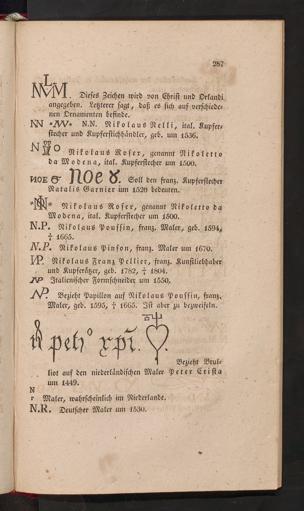 287
NVLM. Dieses Zeichen wird von Christ und Orlandi
angegeben. Letzterer sagt, daß es sich auf verschiede-
nen Ornamenten befinde.
N.N. Nikolaus Nelli, ital. Kupfer-
stecher und Kupferstichhändler, geb. um 1536.
Nikolaus Roser, genannt Nikoletto
da Modena, ital. Kupferstecher um 1500.
NOE Noe 8. Soll den franz. Kupferstecher
Natalis Garnier um 1520 bedeuten.
Nikolaus Roser, genannt Nikoletto da
Modena, ital. Kupferstecher um 1500.
N.P. Nikolaus Poussin, franz. Maler, geb. 1594,
† 1665.
N.P. Nikolaus Pinson, franz. Maler um 1670.
NP. Nikolaus Franz Pellier, franz. Kunstliebhaber
und Kupferätzer, geb. 1782, † 1804.
NP Italienischer Formschneider um 1550.
NP. Bezieht Papillon auf Nikolaus Poussin, franz.
Maler, geb. 1595, † 1665. Ist aber zu bezweifeln.
petr xpi.
Bezieht Brul-
liot auf den niederländischen Maler Peter Crista
um 1449.
N
r Maler, wahrscheinlich im Niederlande.
N.R. Deutscher Maler um 1530.